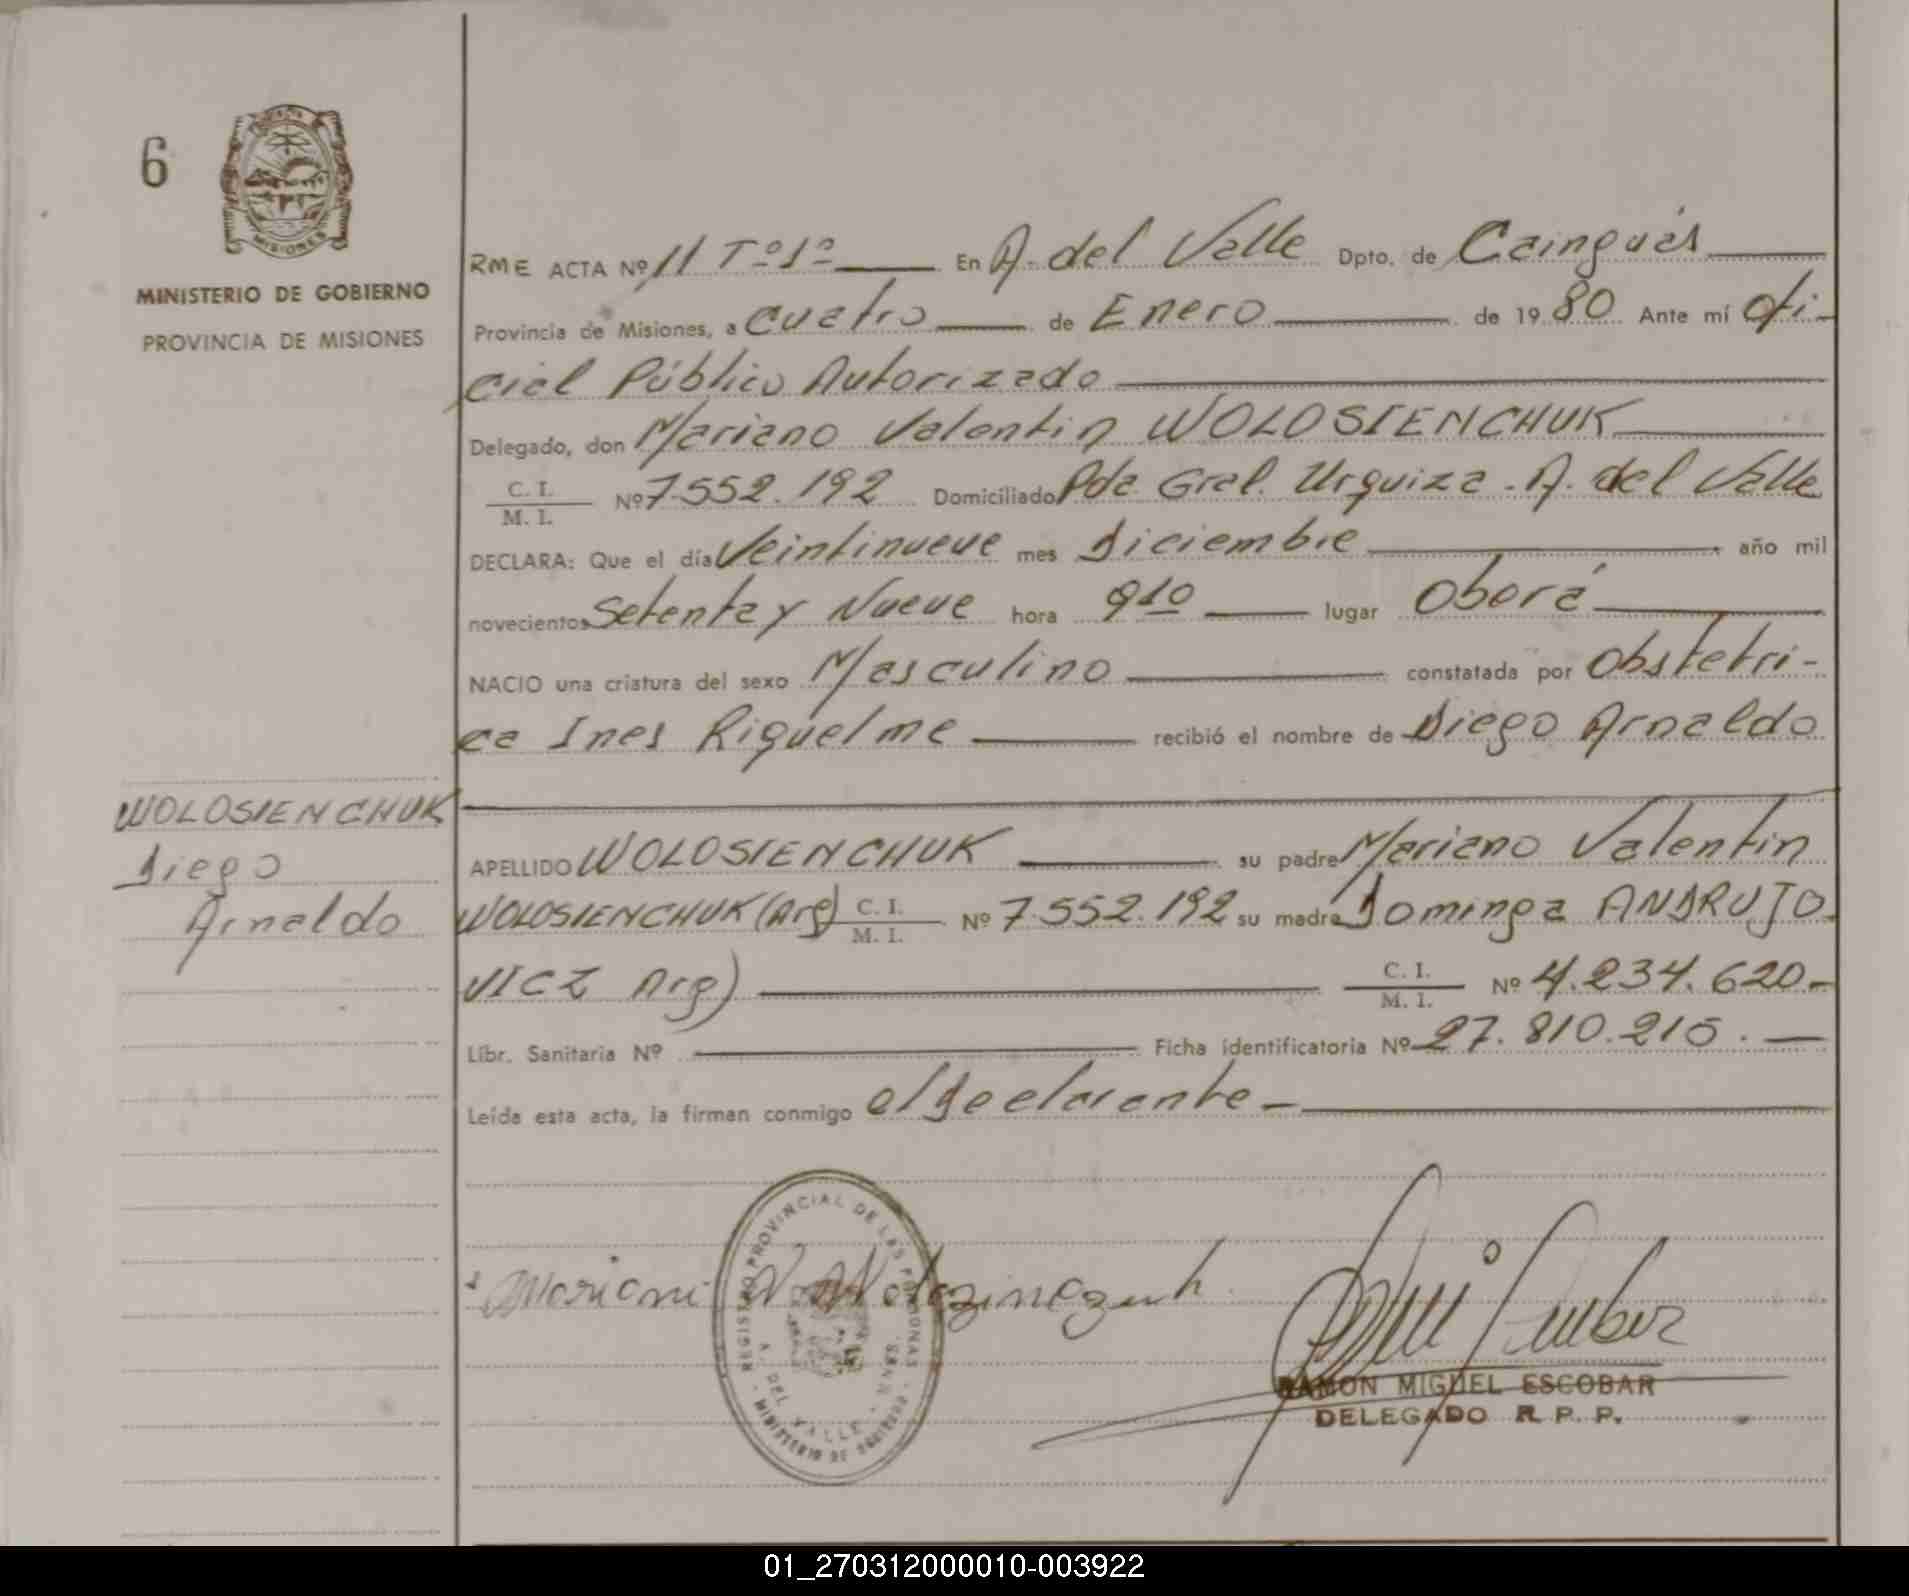 6
MISIONES
MINISTERIO DE GOBIERNO
PROVINCIA DE MISIONES
RME ACTA Nº 11 Tº 1º En A. del Valle Dpto. de Cainguás
Provincia de Misiones, a cuatro de Enero de 1980 Ante mí Ofi-
cial Público Autorizado
Delegado, don Mariano Valentin WOLOSIENCHUK
C. I.
M. I. Nº 7.552.192 Domiciliado Pda Gral. Urquiza. A. del Valle
DECLARA: Que el día Veintinueve mes Diciembre año mil
novecientos Setenta y Nueve hora 9 10 lugar Oberá
NACIO una criatura del sexo Masculino constatada por Obstetri-
ca Ines Riquelme recibió el nombre de Diego Arnaldo
WOLOSIENCHUK
Diego
Arnaldo
APELLIDO WOLOSIENCHUK su padre Mariano Valentin
WOLOSIENCHUK (Arg) C. I.
M. I. Nº 7.552.192 su madre Dominga ANDRUJO
VICZ Arg) C. I.
M. I. Nº 4.234.620.-
Libr. Sanitaria Nº Ficha identificatoria Nº 27.810.215.
Leída esta acta, la firman conmigo el Declarante
REGISTRO PROVINCIAL DE LAS PERSONAS
A. DEL VALLE - MNES.
MINISTERIO DE GOBIERNO
RAMON MIGUEL ESCOBAR
DELEGADO R. P. P.
01_270312000010-003922